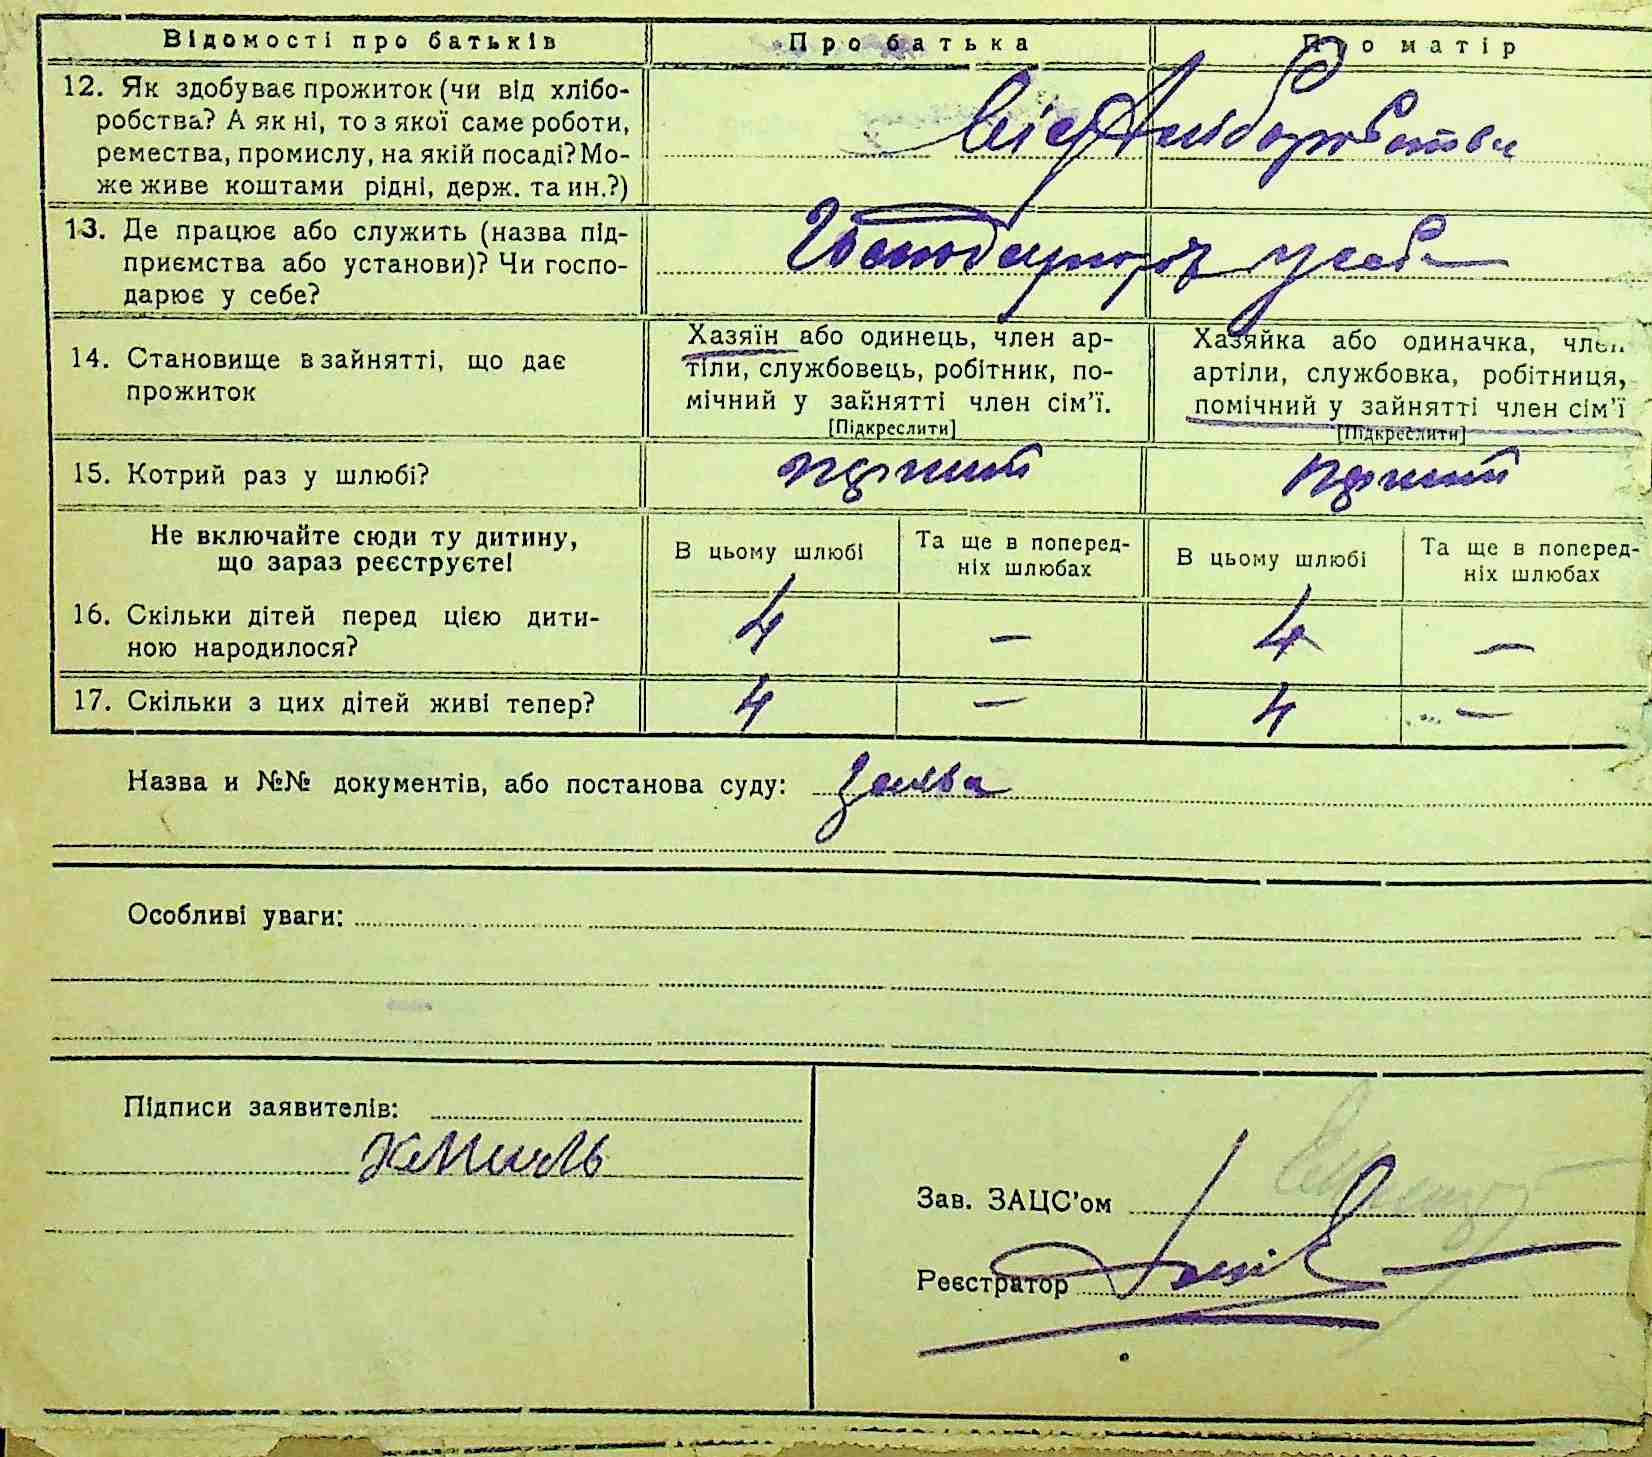 Відомості про батьків Про батька Про матір
12. Як здобуває прожиток (чи від хлібо-
робства? А як ні, то з якої саме роботи,
ремества, промислу, на якій посаді? Мо-
же живе коштами рідні, держ. та ин.?)
від хліборобства
13. Де працює або служить (назва під-
приємства або установи)? Чи госпо-
дарює у себе?
у себе
14. Становище в зайнятті, що дає
прожиток
Хазяїн або одинець, член ар-
тіли, службовець, робітник, по-
мічний у зайнятті член сім’ї.
[Підкреслити]
Хазяйка або одиначка, член
артіли, службовка, робітниця,
помічний у зайнятті член сім’ї
[Підкреслити]
15. Котрий раз у шлюбі? перший перший
Не включайте сюди ту дитину,
що зараз реєструєте!
В цьому шлюбі
Та ще в поперед-
ніх шлюбах
В цьому шлюбі
Та ще в поперед-
ніх шлюбах
16. Скільки дітей перед цією дити-
ною народилося?
4 — 4 —
17. Скільки з цих дітей живі тепер? 4 — 4 —
Назва и №№ документів, або постанова суду: Заява
Особливі уваги:
Підписи заявителів:
Зав. ЗАЦС’ом
Реєстратор